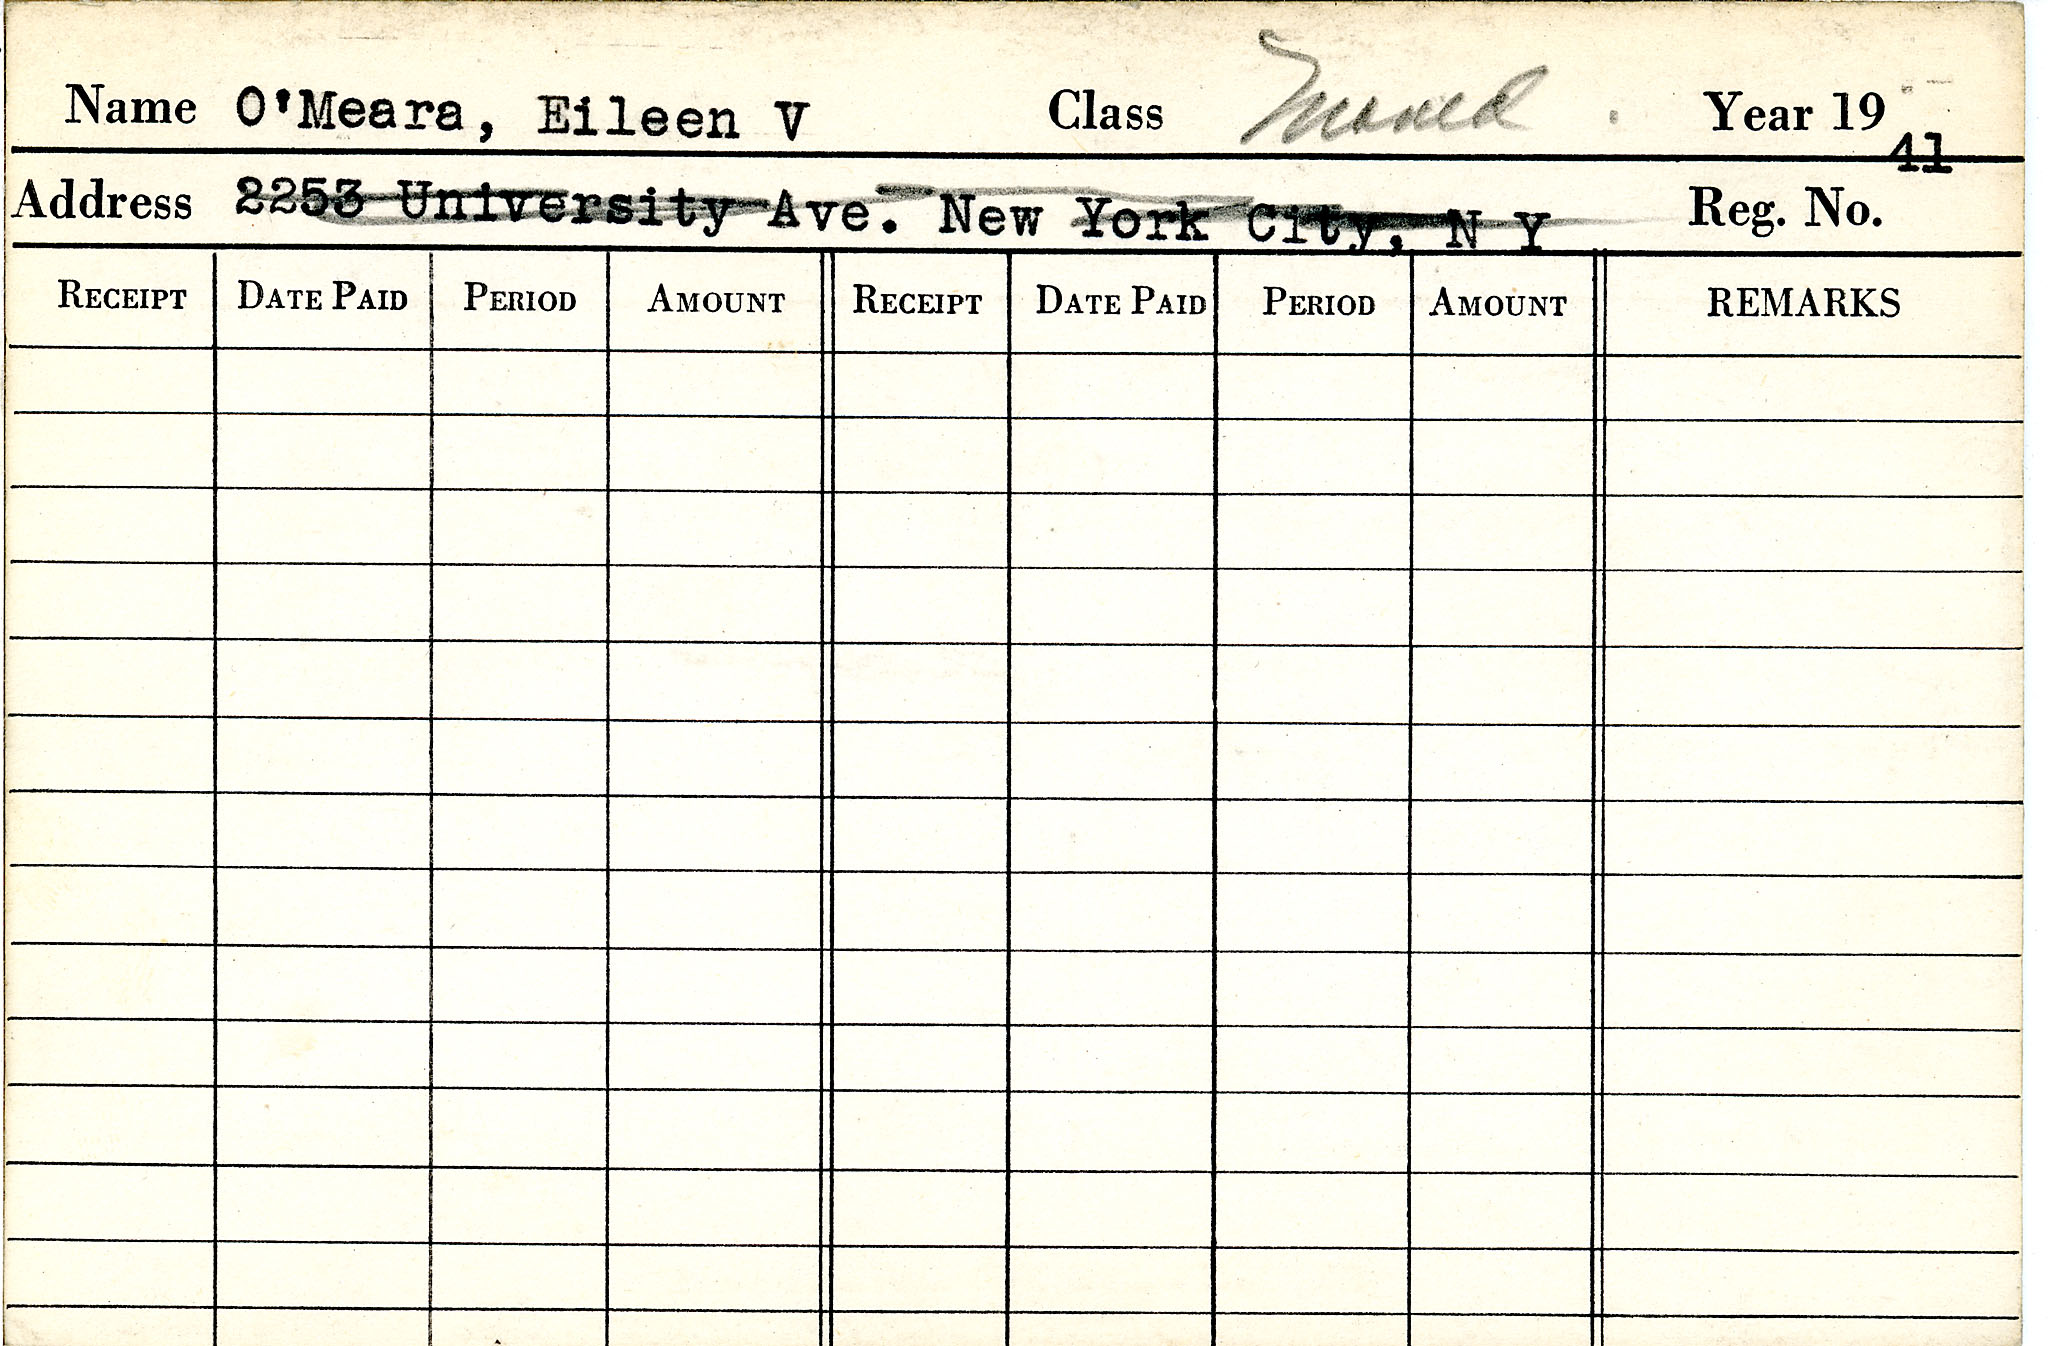 Name O'Meara, Eileen V Class Moved. Year 1941
Address 2253 University Ave. New York City, N Y Reg. No.
RECEIPT DATE PAID PERIOD AMOUNT RECEIPT DATE PAID PERIOD AMOUNT REMARKS